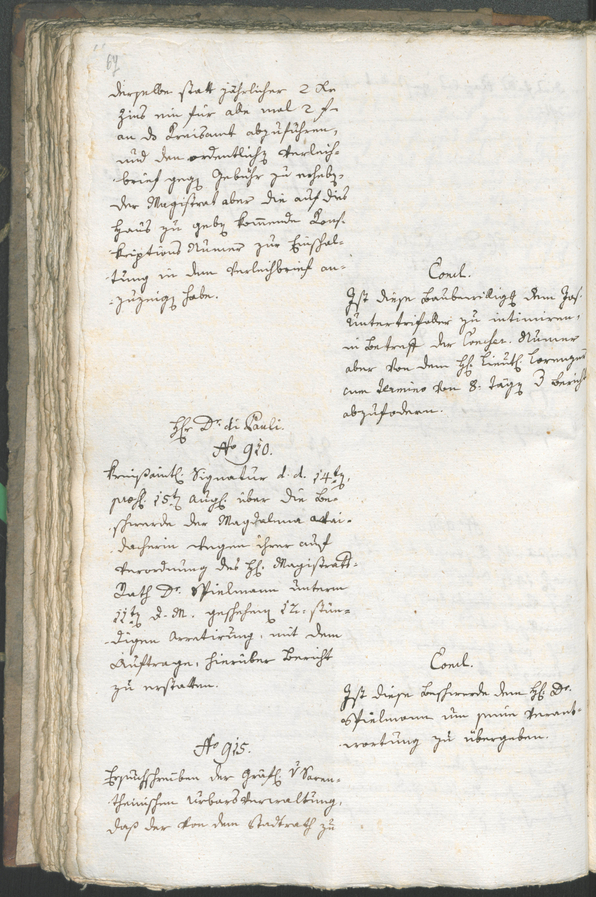 67
derselbe statt jährlicher 2 Kr
Zins ein für alle mal 2 f
an ds Kreisamt abzuführen,
und den ordentlichen Verleih-
brief gegen Gebühr zu erheben,
der Magistrat aber die auf dies
Haus zu geben kommende Cons-
kriptions Numer zur Einschal-
tung in dem Verleihbrief an-
zuzeigen habe.
Concl.
Ist diese Baubewilligg dem Jos.
Untertrifaller zu intimiren,
in Betreff der Conscr. Numer
aber von dem H. Lieut. Lorenzoni
cum Termino von 8. Tägen Bericht
abzufodern.
Hr Dr. di Pauli.
No 910.
Kreisämtl. Signatur d. d. 14ten,
15ten Augst. über die Be-
schwerde der Magdalena
wegen ihrer auf
Verordnung des H. Magistrats-
Rath Dr. Spielmann unterm
11ten d. M. geschehenen 12-stün-
digen Arretirung, mit dem
Auftrage, hierüber Bericht
zu erstatten.
Concl.
Ist diese Beschwerde dem H. Dr.
Spielmann um seine Verant-
wortung zu übergeben.
No 915.
Ersuchschreiben der Gräfl. v Saren-
theinischen Urbarsverwaltung,
daß der von dem Stadtrath zu